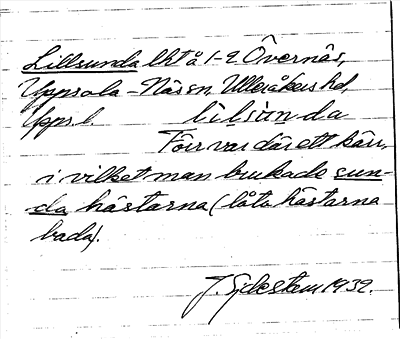 Lillsunda lht å 1-2 Övernäs,
Uppsala-Näs sn, Ulleråkers hd,
Upps. l. lilsunda
Förr var där ett kärr,
i vilket man brukade sun-
da hästarna (låta hästarna
bada).
J. Sjdestem 1932.